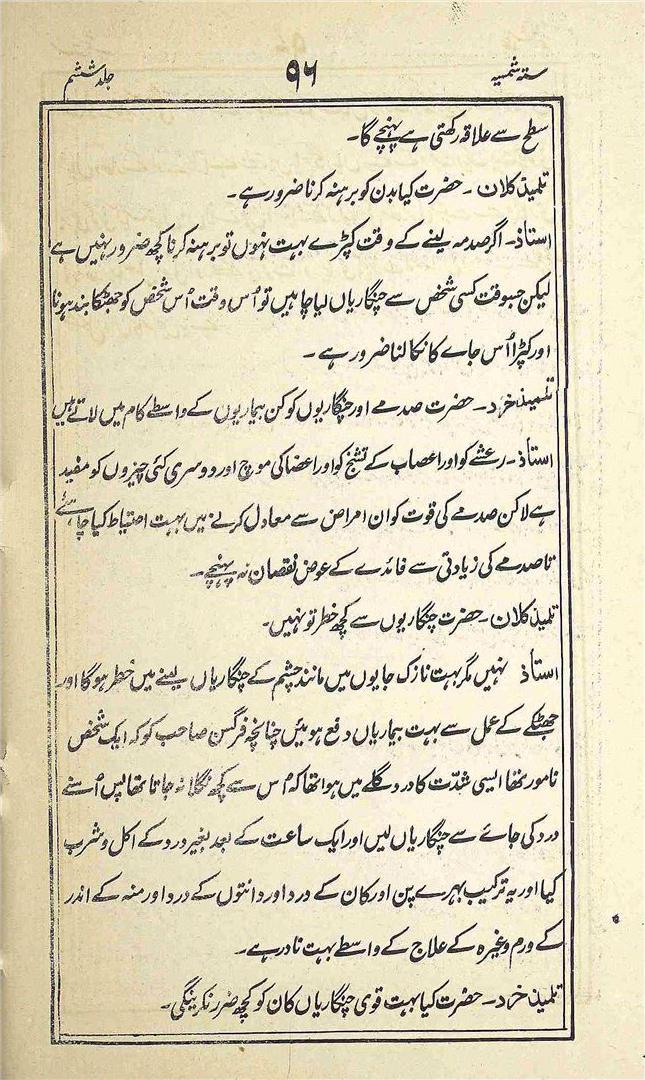 ستہ شمسیہ ۹۶ جلد ششم
سطح سے علاقہ رکھتی ہے پہنچے گا۔
تلمیذ کلان ۔ حضرت کیا بدن کو برہنہ کرنا ضرور ہے۔
استاذ۔ اگر صدمہ لینے کے وقت کپڑے بہت نہوں تو برہنہ کرنا کچھ ضرور نہیں ہے
لیکن جسوقت کسی شخص سے چنگاریاں لیا چاہیں تو اُس وقت اُس شخص کو جھٹکا بند ہونا
اور کپڑا اُس جاے کا نکالنا ضرور ہے ۔
تلمیذ خرد۔ حضرت صدمے اور چنگاریوں کو کن بیماریوں کے واسطے کام میں لاتے ہیں
استاذ۔ رعشے کو اور اعصاب کے تشنج کو اور اعضا کی موچ اور دوسری کئی چیزوں کو مفید
ہے لاکن صدمے کی قوت کو ان امراض سے معادل کرنے میں بہت احتیاط کیا چاہئے
تا صدمے کی زیادتی سے فائدے کے عوض نقصان نہ پہنچے۔
تلمیذ کلان۔ حضرت چنگاریوں سے کچھ خطر تو نہیں۔
استاذ نہیں مگر بہت نازک جایوں میں مانند چشم کے چنگاریاں لینے میں خطر ہو گا اور
جھٹکے کے عمل سے بہت بیماریاں دفع ہوئیں چنانچہ فرگسن صاحب کو کہ ایک شخص
نامور تھا ایسی شدّت کا درد گلے میں ہوا تھا کہ اُس سے کچھ نگلا نہ جاتا تھا پس اُسنے
درد کی جاے سے چنگاریاں لیں اور ایک ساعت کے بعد بغیر درد کے اکل و شرب
کیا اور یہ ترکیب بہرے پن اور کان کے درد اور دانتوں کے درد اور منہ کے اندر
کے ورم وغیرہ کے علاج کے واسطے بہت نادر ہے۔
تلمیذ خرد۔ حضرت کیا بہت قوی چنگاریاں کان کو کچھ ضرر نکرینگی۔